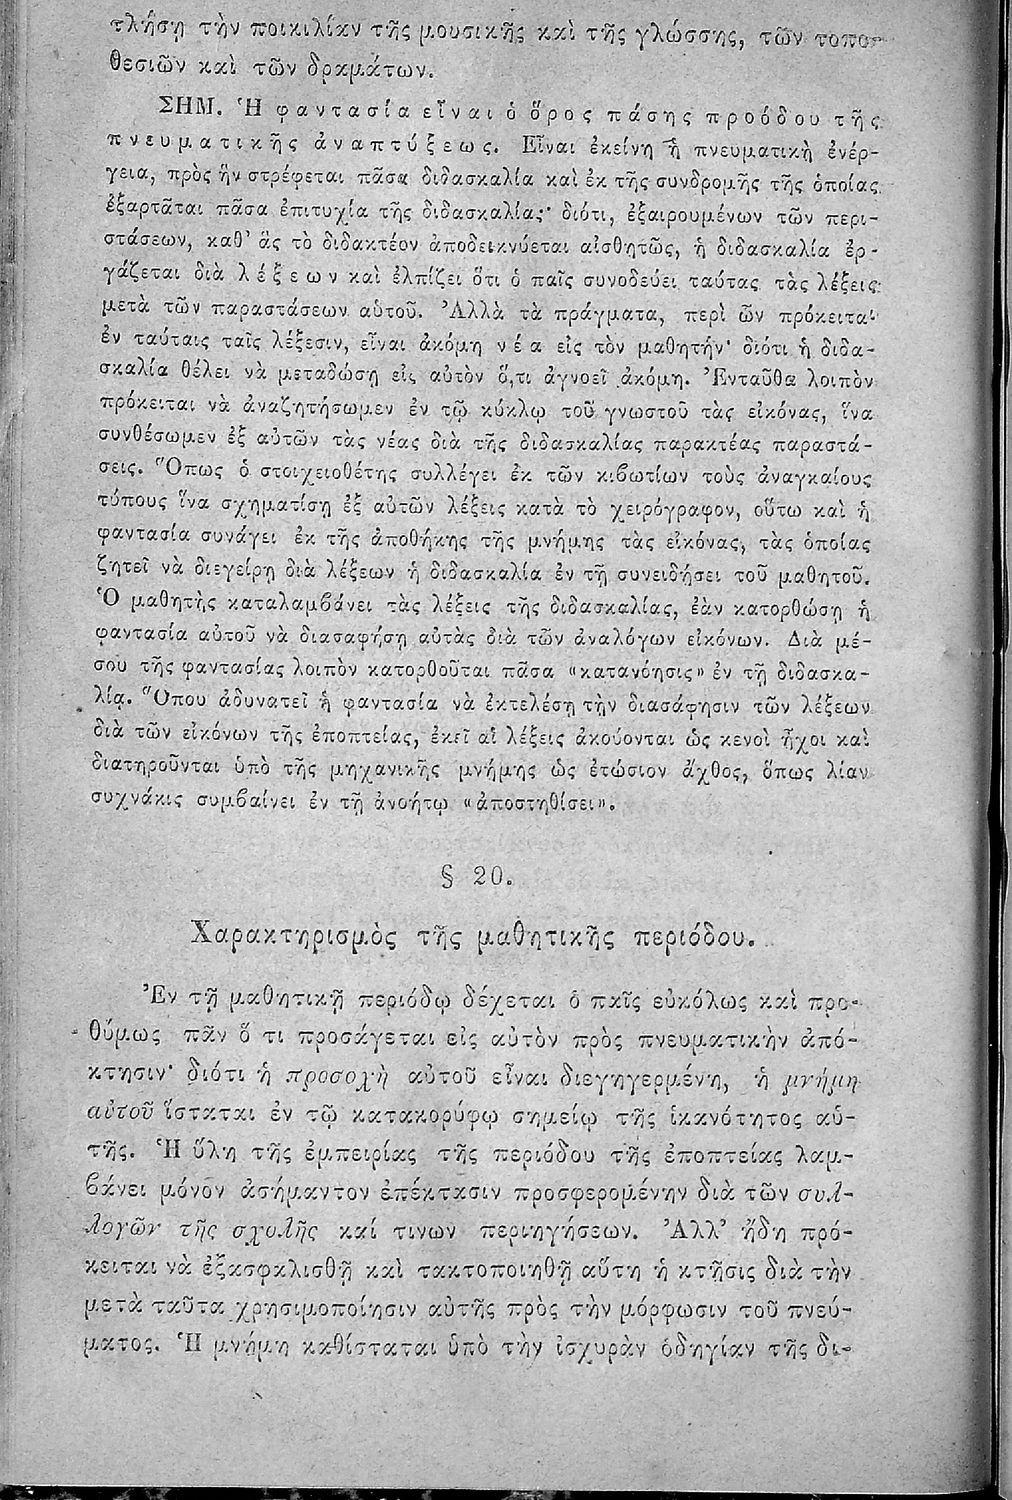 τλήσῃ τὴν ποικιλίαν τῆς μουσικῆς καὶ τῆς γλώσσης, τῶν τοπο-
θεσιῶν καὶ τῶν δραμάτων.
ΣΗΜ. Ἡ φαντασία εἶναι ὁ ὅρος πάσης προόδου τῆς
πνευματικῆς ἀναπτύξεως. Εἶναι ἐκείνη ἡ πνευματικὴ ἐνέρ-
γεια, πρὸς ἣν στρέφεται πᾶσα διδασκαλία καὶ ἐκ τῆς συνδρομῆς τῆς ὁποίας
ἐξαρτᾶται πᾶσα ἐπιτυχία τῆς διδασκαλίας· διότι, ἐξαιρουμένων τῶν περι-
στάσεων, καθ' ἃς τὸ διδακτέον ἀποδεικνύεται αἰσθητῶς, ἡ διδασκαλία ἐρ-
γάζεται διὰ λέξεων καὶ ἐλπίζει ὅτι ὁ παῖς συνοδεύει ταύτας τὰς λέξεις
μετὰ τῶν παραστάσεων αὑτοῦ. Ἀλλὰ τὰ πράγματα, περὶ ὧν πρόκειται
ἐν ταύταις ταῖς λέξεσιν, εἶναι ἀκόμη νέα εἰς τὸν μαθητήν· διότι ἡ διδα-
σκαλία θέλει νὰ μεταδώσῃ εἰς αὐτὸν ὅ,τι ἀγνοεῖ ἀκόμη. Ἐνταῦθα λοιπὸν
πρόκειται νὰ ἀναζητήσωμεν ἐν τῷ κύκλῳ τοῦ γνωστοῦ τὰς εἰκόνας, ἵνα
συνθέσωμεν ἐξ αὐτῶν τὰς νέας διὰ τῆς διδασκαλίας παρακτέας παραστά-
σεις. Ὅπως ὁ στοιχειοθέτης συλλέγει ἐκ τῶν κιβωτίων τοὺς ἀναγκαίους
τύπους ἵνα σχηματίσῃ ἐξ αὐτῶν λέξεις κατὰ τὸ χειρόγραφον, οὕτω καὶ ἡ
φαντασία συνάγει ἐκ τῆς ἀποθήκης τῆς μνήμης τὰς εἰκόνας, τὰς ὁποίας
ζητεῖ νὰ διεγείρῃ διὰ λέξεων ἡ διδασκαλία ἐν τῇ συνειδήσει τοῦ μαθητοῦ.
Ὁ μαθητὴς καταλαμβάνει τὰς λέξεις τῆς διδασκαλίας, ἐὰν κατορθώσῃ ἡ
φαντασία αὐτοῦ νὰ διασαφήσῃ αὐτὰς διὰ τῶν ἀναλόγων εἰκόνων. Διὰ μέ-
σου τῆς φαντασίας λοιπὸν κατορθοῦται πᾶσα «κατανόησις» ἐν τῇ διδασκα-
λίᾳ. Ὅπου ἀδυνατεῖ ἡ φαντασία νὰ ἐκτελέσῃ τὴν διασάφησιν τῶν λέξεων
διὰ τῶν εἰκόνων τῆς ἐποπτείας, ἐκεῖ αἱ λέξεις ἀκούονται ὡς κενοὶ ἦχοι καὶ
διατηροῦνται ὑπὸ τῆς μηχανικῆς μνήμης ὡς ἐτώσιον ἄχθος, ὅπως λίαν
συχνάκις συμβαίνει ἐν τῇ ἀνοήτῳ «ἀποστηθίσει».
§ 20.
Χαρακτηρισμὸς τῆς μαθητικῆς περιόδου.
Ἐν τῇ μαθητικῇ περιόδῳ δέχεται ὁ παῖς εὐκόλως καὶ προ-
θύμως πᾶν ὅ τι προσάγεται εἰς αὐτὸν πρὸς πνευματικὴν ἀπό-
κτησιν· διότι ἡ προσοχὴ αὐτοῦ εἶναι διεγηγερμένη, ἡ μνήμη
αὐτοῦ ἵσταται ἐν τῷ κατακορύφῳ σημείῳ τῆς ἱκανότητος αὑ-
τῆς. Ἡ ὕλη τῆς ἐμπειρίας τῆς περιόδου τῆς ἐποπτείας λαμ-
βάνει μόνον ἀσήμαντον ἐπέκτασιν προσφερομένην διὰ τῶν συλ-
λογῶν τῆς σχολῆς καί τινων περιηγήσεων. Ἀλλ' ἤδη πρό-
κειται νὰ ἐξασφαλισθῇ καὶ τακτοποιηθῇ αὕτη ἡ κτῆσις διὰ τὴν
μετὰ ταῦτα χρησιμοποίησιν αὐτῆς πρὸς τὴν μόρφωσιν τοῦ πνεύ-
ματος. Ἡ μνήμη καθίσταται ὑπὸ τὴν ἰσχυρὰν ὁδηγίαν τῆς δι-